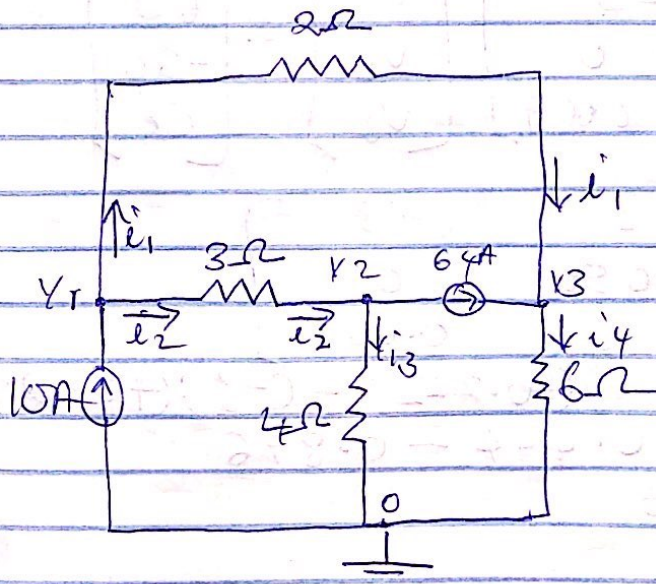 2Ω
i₁
i₁
3Ω
V2
64A
V1
V3
i₂
i₂
i₃
i4
10A
4Ω
6Ω
0